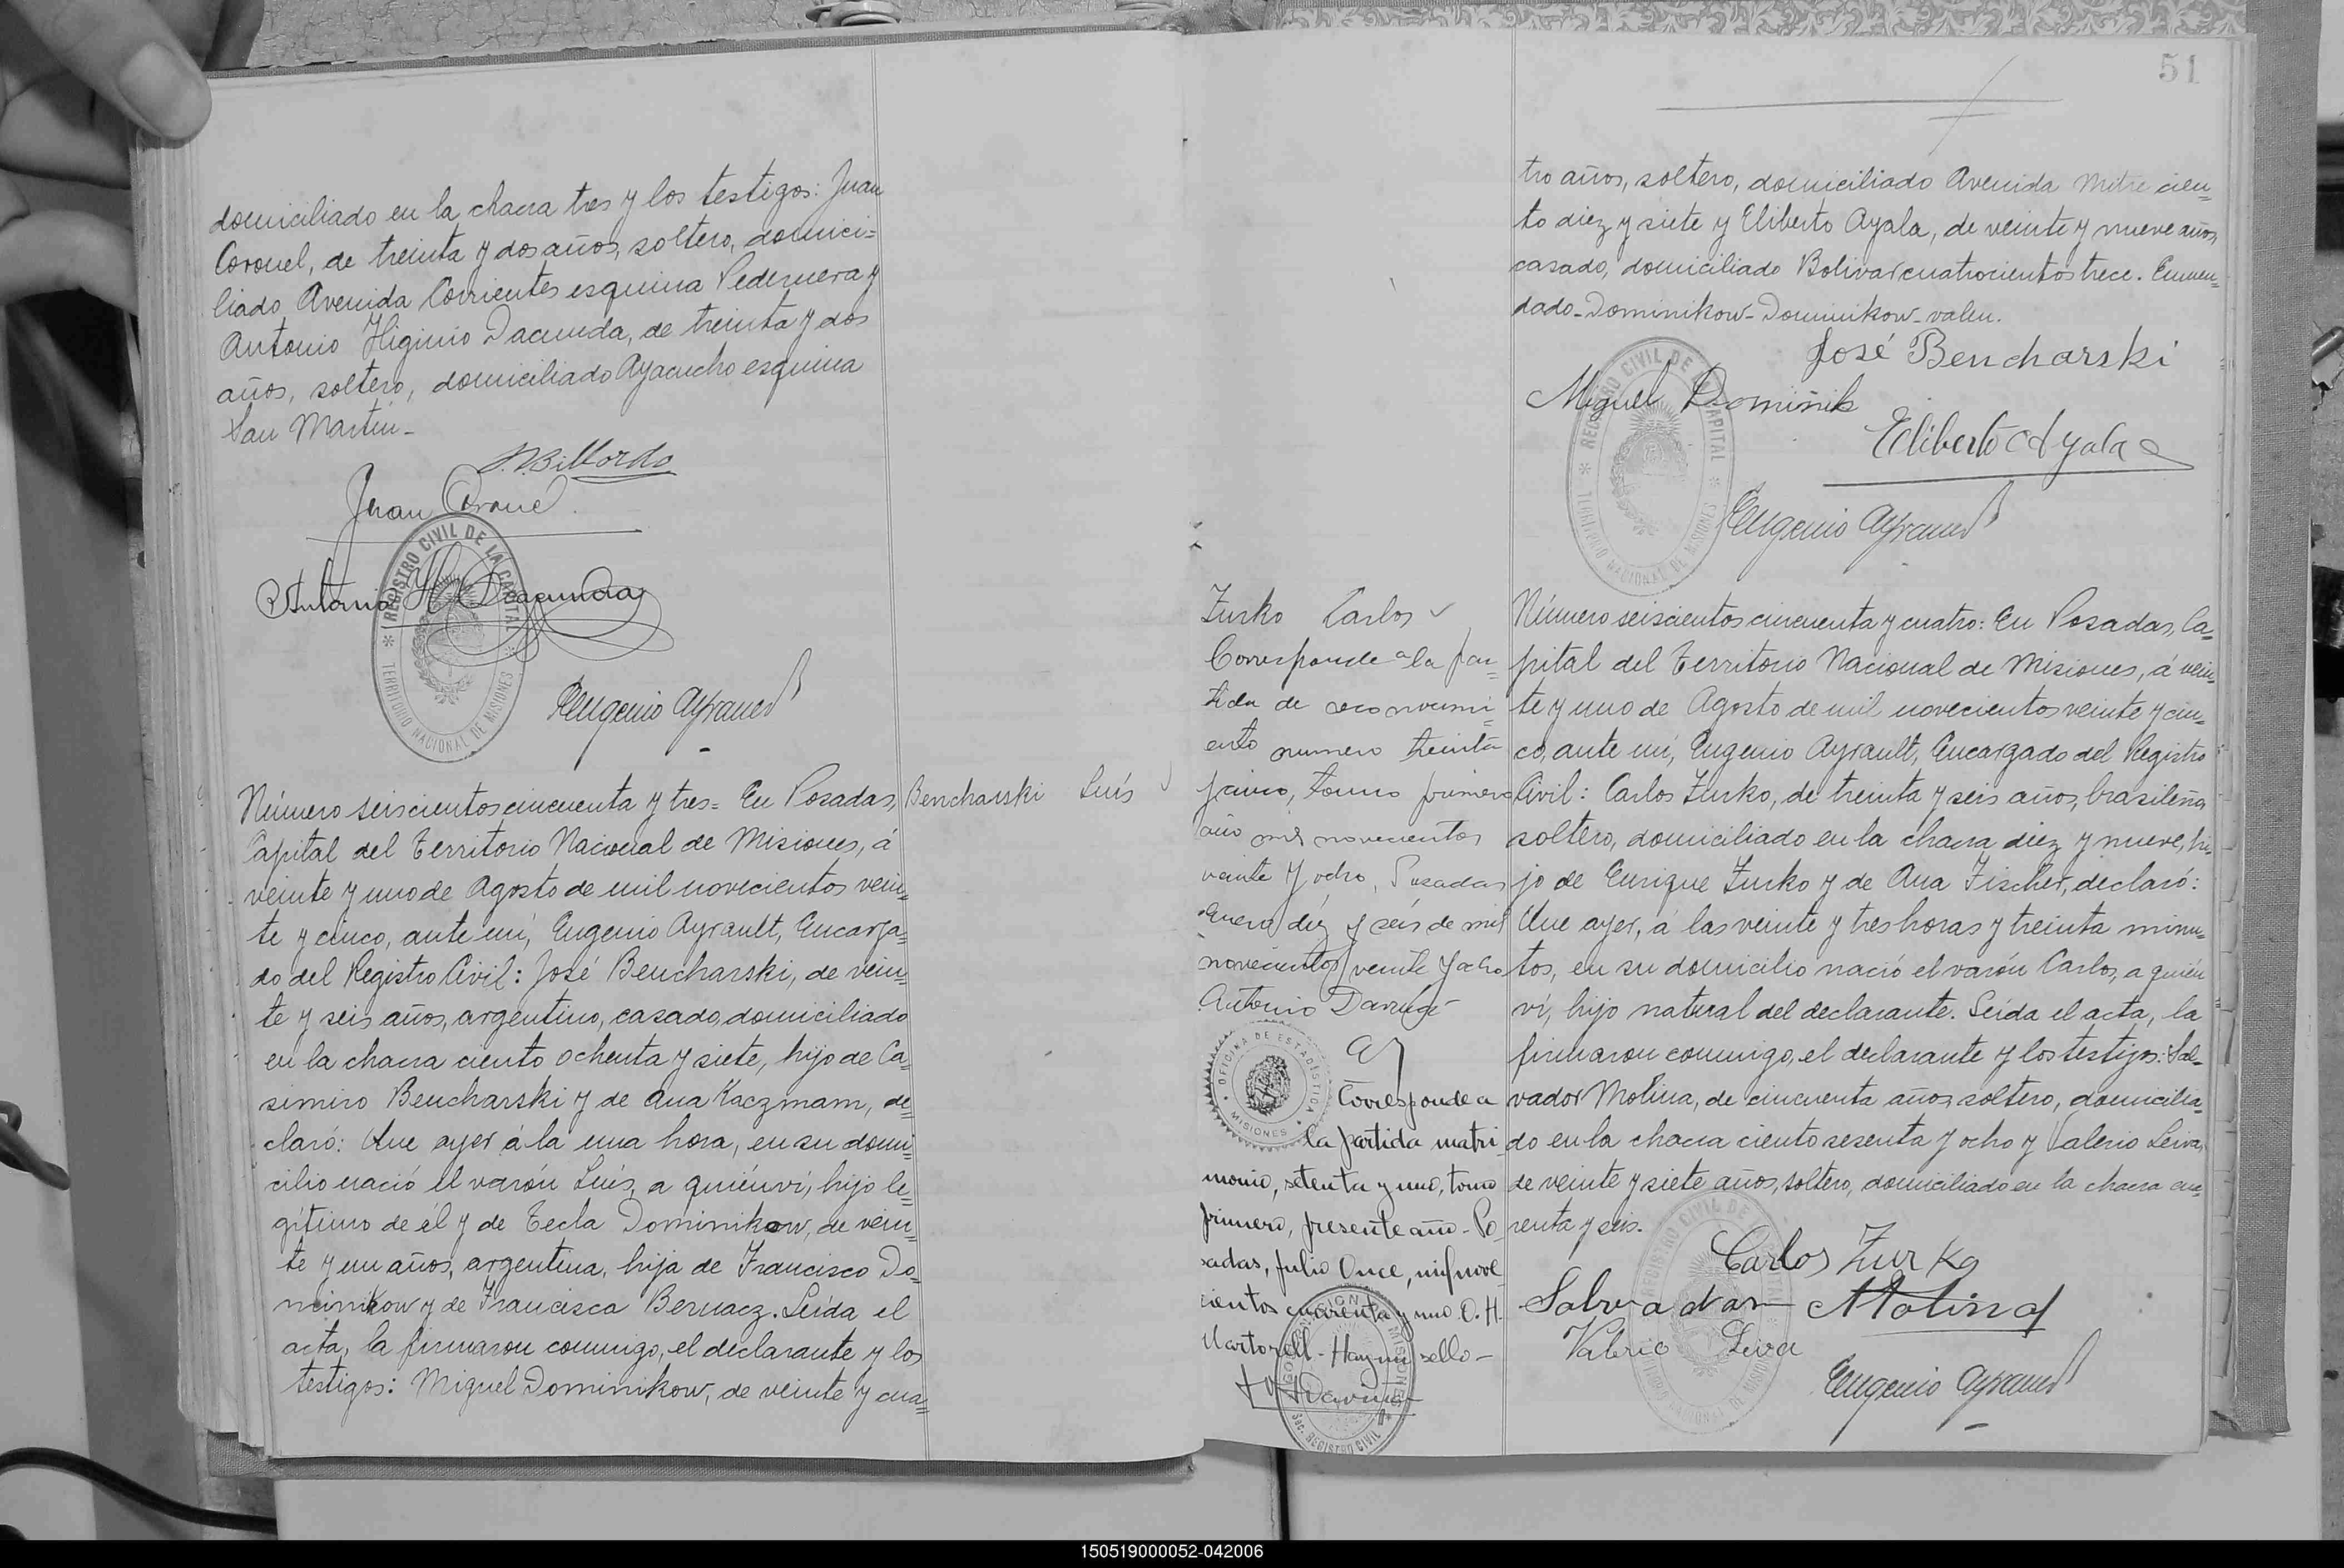 domiciliado en la chacra tres y los testigos: Juan
Coronel, de treinta y dos años, soltero, domici=
liado Avenida Corrientes esquina Pedernera y
Antonio Higinio Dacunda, de treinta y dos
años, soltero, domiciliado Ayacucho esquina
San Martin-
Juan Coronel
Antonio H. Dacunda
REGISTRO CIVIL DE LA CAPITAL
* TERRITORIO NACIONAL DE MISIONES *
Eugenio Ayrault
Bencharski Luís
Número seiscientos cincuenta y tres= En Posadas,
Capital del Territorio Nacional de Misiones, á
veinte y uno de Agosto de mil novecientos vein=
te y cinco, ante mí, Eugenio Ayrault, Encarga=
do del Registro Civil: José Bencharski, de vein=
te y seis años, argentino, casado, domiciliado
en la chacra ciento ochenta y siete, hijo de Ca=
simiro Bencharski y de Ana Kaczmam, de=
claró: Que ayer á la una hora, en su domi=
cilio nació el varón Luís, a quién ví, hijo le=
gítimo de él y de Tecla Dominikow, de vein=
te y un años, argentina, hija de Francisco Do=
minikow y de Francisca Bernacz. Leída el
acta, la firmaron conmigo, el declarante y los
testigos: Miguel Dominikow, de veinte y cua=
51
tro años, soltero, domiciliado Avenida Mitre cien=
to diez y siete y Eliberto Ayala, de veinte y nueve años,
casado, domiciliado Bolivar cuatrocientos trece. Enmen=
dado-Dominikow-Dominikow-valen.
José Bencharski
Miguel Dominik
Eliberto Ayala
REGISTRO CIVIL DE LA CAPITAL
* TERRITORIO NACIONAL DE MISIONES *
Eugenio Ayrault
Zurko Carlos
Corresponde a la par=
tida de reconocimi=
ento numero treinta
y cinco, tomo primero
año mil novecientos
veinte y ocho, Posadas
Enero diez y seis de mil
novecientos veinte y ocho
Antonio
OFICINA DE ESTADISTICA
MISIONES
Corresponde a
la partida matri
monio, setenta y uno, tomo
primero, presente año- Po
sadas, Julio Once, mil nove
cientos cuarenta y uno. O. H.
Martorell- Hay un sello-
GOBERNACION MISIONES
Sec. REGISTRO CIVIL
Número seiscientos cincuenta y cuatro: En Posadas, Ca=
pital del Territorio Nacional de Misiones, á vein=
te y uno de Agosto de mil novecientos veinte y cin=
co, ante mí, Eugenio Ayrault, Encargado del Registro
Civil: Carlos Zurko, de treinta y seis años, brasileño,
soltero, domiciliado en la chacra diez y nueve, hi=
jo de Enrique Zurko y de Ana Fischer, declaró:
Que ayer, á las veinte y tres horas y treinta minu=
tos, en su domicilio nació el varón Carlos, a quién
ví, hijo natural del declarante. Leída el acta, la
firmaron conmigo, el declarante y los testigos: Sal=
vador Molina, de cincuenta años, soltero, domicilia=
do en la chacra ciento sesenta y ocho y Valerio Leiva,
de veinte y siete años, soltero, domiciliado en la chacra cua=
renta y seis.
Carlos Zurko
Salvador Molina
Valerio Leiva
REGISTRO CIVIL DE
Eugenio Ayrault
150519000052-042006